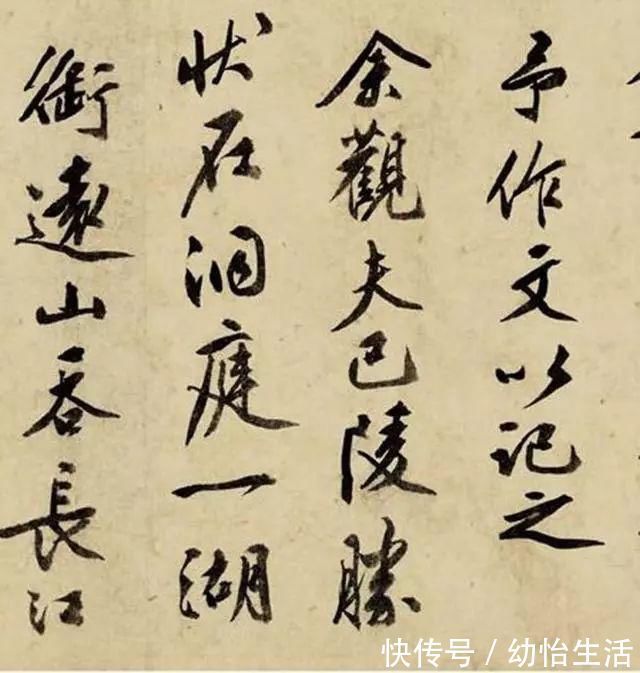 予作文以记之
余觀夫巴陵勝
狀在洞庭一湖
銜遠山吞長江
快传号/幼怡生活